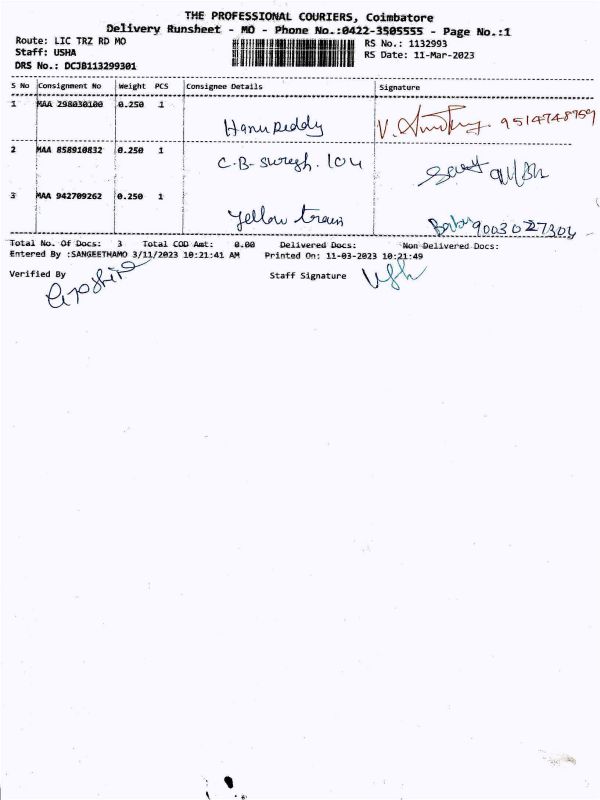 THE PROFESSIONAL COURIERS, Coimbatore
Delivery Runsheet - MO - Phone No.:0422-3505555 - Page No.:1
Route: LIC TRZ RD MO RS No.: 1132993
Staff: USHA RS Date: 11-Mar-2023
DRS No.: DCJB113299301
S No Consignment No Weight PCS Consignee Details Signature
1 MAA 298030100 0.250 1
Hanu Reddy V. 9514748959
2 MAA 858910832 0.250 1
C.B- Suresh. 104
3 MAA 942709262 0.250 1
Yellow train Baby 9003027304
Total No. Of Docs: 3 Total COD Amt: 0.00 Delivered Docs: Non Delivered Docs:
Entered By :SANGEETHAMO 3/11/2023 10:21:41 AM Printed On: 11-03-2023 10:21:49
Verified By Staff Signature Usha